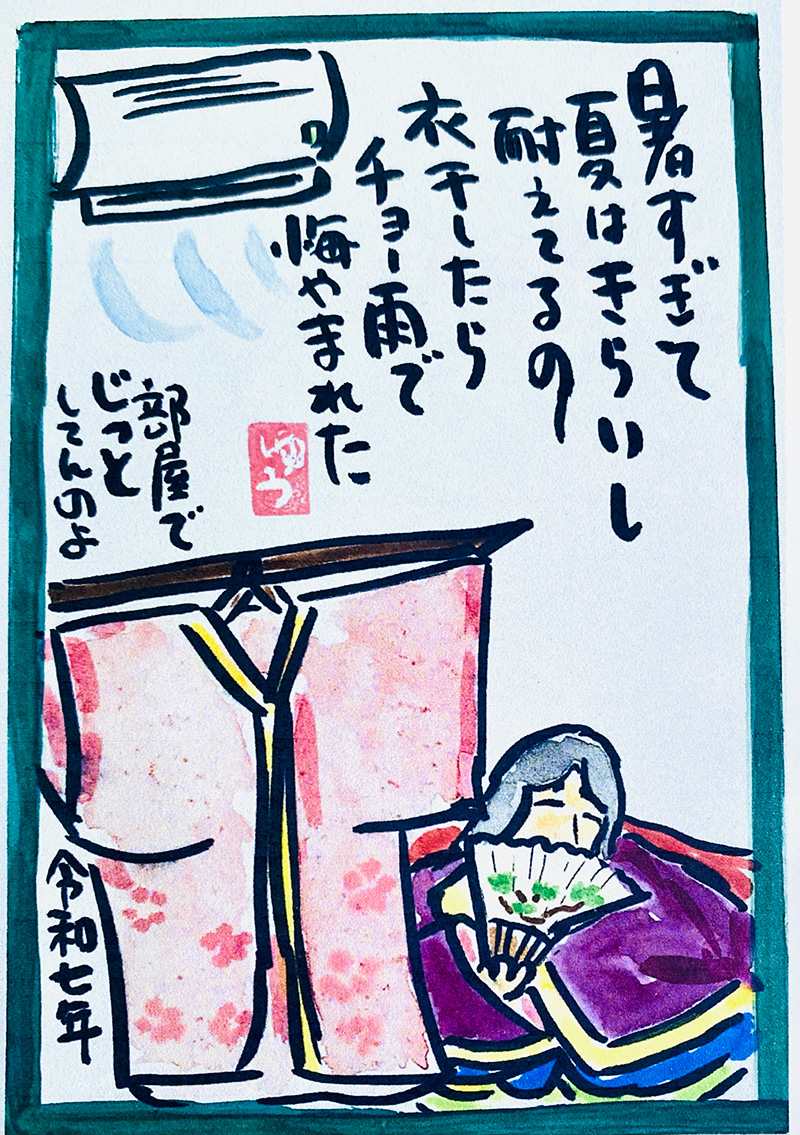 暑すぎて
夏はきらいし
耐えてるの
衣干したら
チョー雨で
悔やまれた
ゆう
部屋で
じっと
してんのよ
令和七年